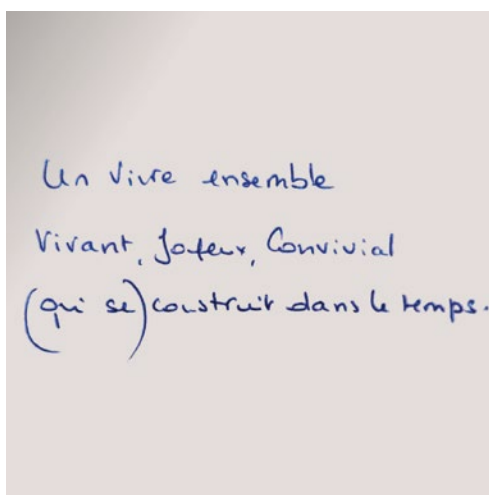 Un vivre ensemble
Vivant, Joyeux, Convivial
(qui se) construit dans le temps.